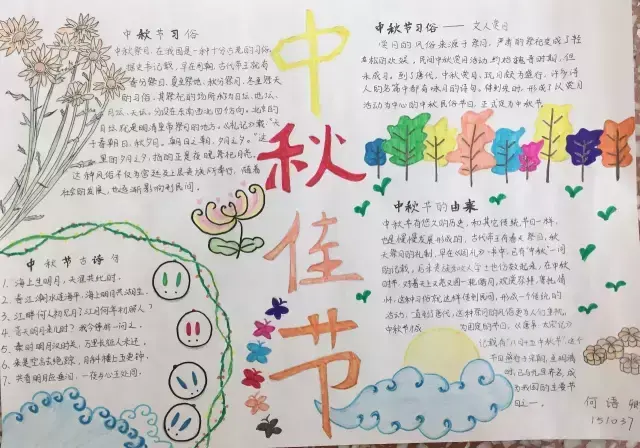 中秋佳节
中秋节习俗
中秋祭月,在我国是一种十分古老的习俗。
据史书记载,早在
春分祭日、夏至祭地、秋分祭月、冬至祭天
的习俗,其祭祀的场所称为日坛、地坛、
月坛、天坛。分设在东南西北四个方向。北京的
月坛就是明清皇帝祭月的地方。《礼记》载:"天
子春朝日,秋夕月。朝日之朝,夕月之夕。"这
里的夕月之夕,指的正是夜晚祭祀月亮。
这种风俗不仅为宫廷及上层贵族所奉行,随着
社会的发展,也逐渐影响到民间。
中秋节习俗——文人赏月
赏月的风俗来源于祭月,严肃的祭祀变成了轻
松的欢娱。民间中秋赏月活动约始魏晋时期,但
未成习。到了唐代,中秋赏月、玩月颇为盛行,许多诗
人的名篇中都有咏月的诗句。待到宋时,形成了以赏月
活动为中心的中秋民俗节日,正式定为中秋节。
中秋节的由来
中秋节有悠久的历史,和其它传统节日一样,
也是慢慢发展形成的,古代帝王有春天祭日,秋
天祭月的礼制,早在《周礼》一书中,已有"中秋"一词
的记载。后来贵族和文人学士也仿效起来,在中秋
时节,对着天上又亮又圆一轮皓月,观赏祭拜,寄托情
怀,这种习俗就这样传到民间,形成一个传统的
活动,一直到了唐代,这种祭月的风俗更为人们重视,
中秋节才成为固定的节日,《唐书·太宗记》
记载有"八月十五中秋节",这个
节日盛行于宋朝,至明清
时,已与元旦齐名,成
为我国的主要节
日之一。
中秋节古诗句
1、海上生明月,天涯共此时。
2、春江潮水连海平,海上明月共潮生。
3、江畔何人初见月?江月何年初照人?
4、青天明月来几时?我今停杯一问之。
5、秦时明月汉时关,万里长征人未还。
6、来是空言去绝踪,月斜楼上五更钟。
7、共看明月应垂泪,一夜乡心五处同。
何语
151037